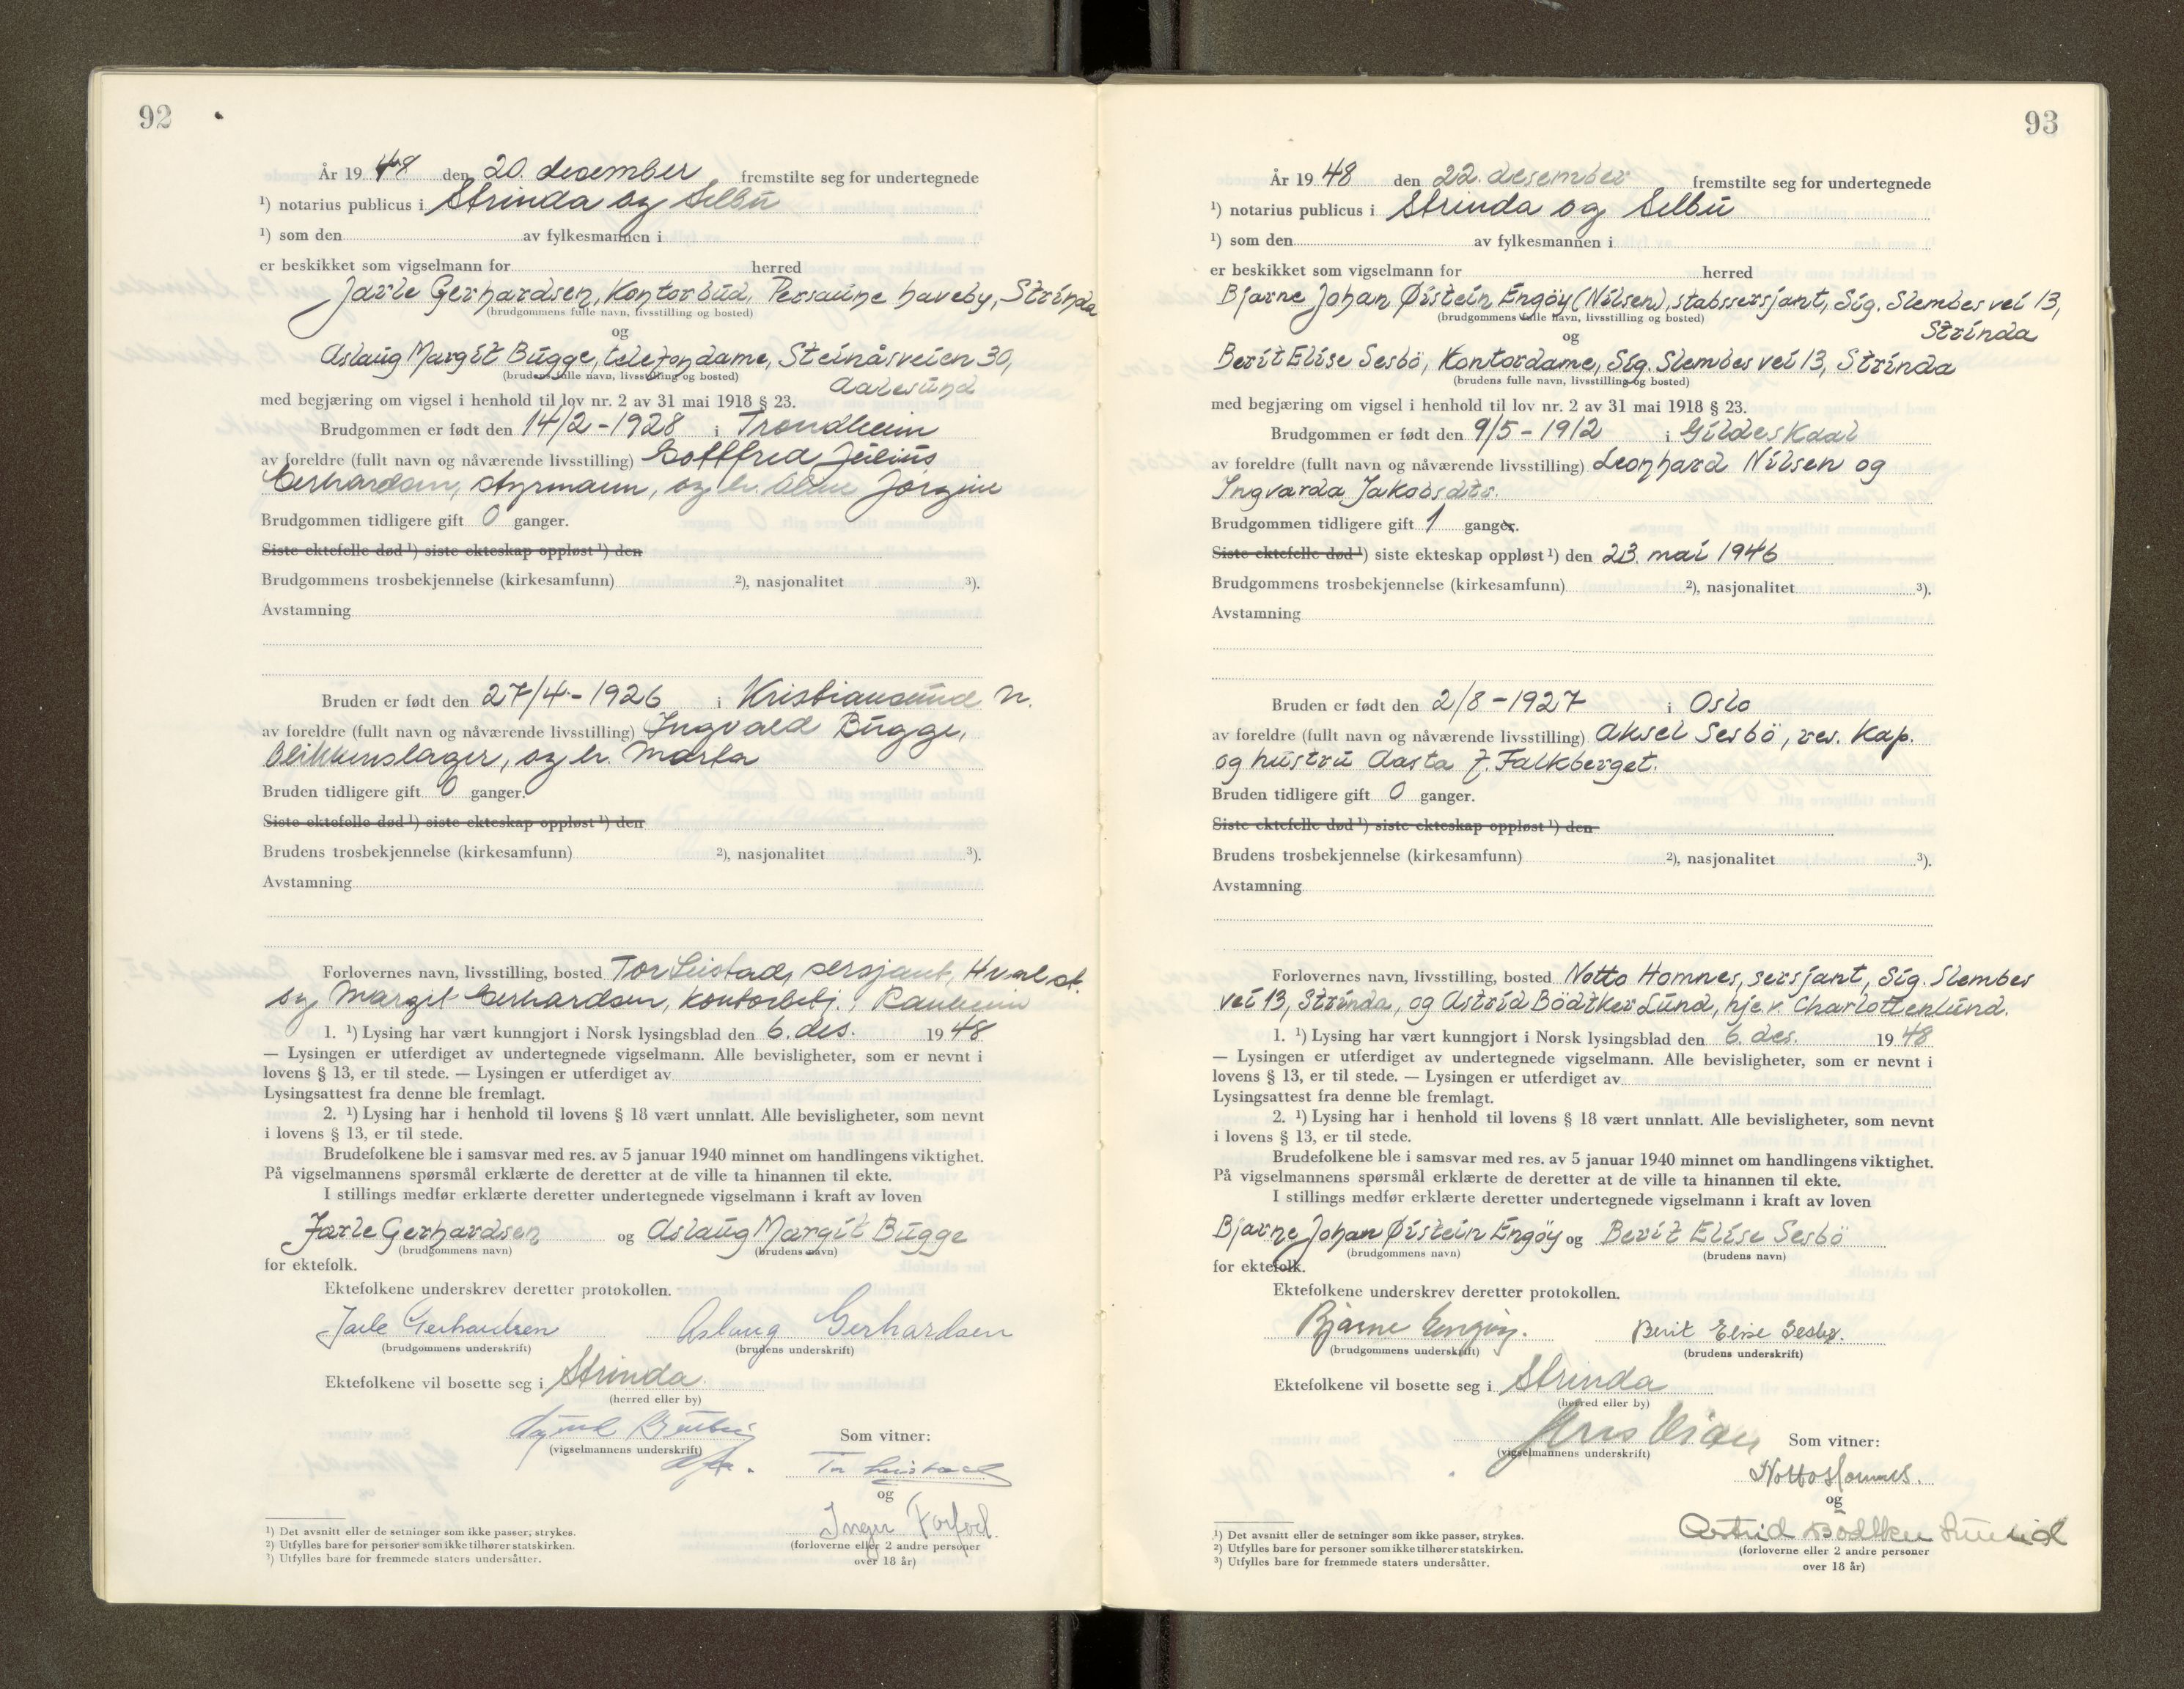 92
År 19 48 den 20. desember fremstilte seg for undertegnede
¹) notarius publicus i Strinda og Selbu
¹) som den av fylkesmannen i
er beskikket som vigselmann for herred
Jarle Gerhardsen, Kontorbud, Persaune haveby, Strinda
(brudgommens fulle navn, livsstilling og bosted)
og
Aslaug Margit Bugge, telefondame, Steinåsveien 30,
(brudens fulle navn, livsstilling og bosted) Aalesund
med begjæring om vigsel i henhold til lov nr. 2 av 31 mai 1918 § 23.
Brudgommen er født den 14/2-1928 i Trondheim
av foreldre (fullt navn og nåværende livsstilling) Gottfred Julius
Gerhardsen, styrmann, og h. Aline Jørgine
Brudgommen tidligere gift 0 ganger.
Siste ektefelle død ¹) siste ekteskap oppløst ¹) den
Brudgommens trosbekjennelse (kirkesamfunn) ²), nasjonalitet ³).
Avstamning
Bruden er født den 27/4-1926 i Kristiansund N.
av foreldre (fullt navn og nåværende livsstilling) Ingvald Bugge,
Blikkenslager, og h. Marta
Bruden tidligere gift 0 ganger.
Siste ektefelle død ¹) siste ekteskap oppløst ¹) den
Brudens trosbekjennelse (kirkesamfunn) ²), nasjonalitet ³).
Avstamning
Forlovernes navn, livsstilling, bosted Tor Leistad, sersjant,
og Margit Gerhardsen, kontorbetj., Ranheim
1. ¹) Lysing har vært kunngjort i Norsk lysingsblad den 6. des. 19 48
— Lysingen er utferdiget av undertegnede vigselmann. Alle bevisligheter, som er nevnt i
lovens § 13, er til stede. — Lysingen er utferdiget av
Lysingsattest fra denne ble fremlagt.
2. ¹) Lysing har i henhold til lovens § 18 vært unnlatt. Alle bevisligheter, som nevnt
i lovens § 13, er til stede.
Brudefolkene ble i samsvar med res. av 5 januar 1940 minnet om handlingens viktighet.
På vigselmannens spørsmål erklærte de deretter at de ville ta hinannen til ekte.
I stillings medfør erklærte deretter undertegnede vigselmann i kraft av loven
Jarle Gerhardsen og Aslaug Margit Bugge
(brudgommens navn) (brudens navn)
for ektefolk.
Ektefolkene underskrev deretter protokollen.
Jarle Gerhardsen Aslaug Gerhardsen
(brudgommens underskrift) (brudens underskrift)
Ektefolkene vil bosette seg i Strinda
(herred eller by)
(vigselmannens underskrift) Som vitner:
Tor Leistad
og
Inger Forfod.
(forloverne eller 2 andre personer
over 18 år)
¹) Det avsnitt eller de setninger som ikke passer, strykes.
²) Utfylles bare for personer som ikke tilhører statskirken.
³) Utfylles bare for fremmede staters undersåtter.
93
År 19 48 den 22. desember fremstilte seg for undertegnede
¹) notarius publicus i Strinda og Selbu
¹) som den av fylkesmannen i
er beskikket som vigselmann for herred
Bjarne Johan Øistein Engöy (Nilsen), stabssersjant, Sig. Slembes vei 13,
(brudgommens fulle navn, livsstilling og bosted)
Strinda
og
Berit Elise Sesbö, Kontordame, Sig. Slembes vei 13, Strinda
(brudens fulle navn, livsstilling og bosted)
med begjæring om vigsel i henhold til lov nr. 2 av 31 mai 1918 § 23.
Brudgommen er født den 9/5-1912 i Gildeskaal
av foreldre (fullt navn og nåværende livsstilling) Leonhard Nilsen og
Ingvarda Jakobsdtr.
Brudgommen tidligere gift 1 ganger.
Siste ektefelle død ¹) siste ekteskap oppløst ¹) den 23. mai 1946
Brudgommens trosbekjennelse (kirkesamfunn) ²), nasjonalitet ³).
Avstamning
Bruden er født den 2/8-1927 i Oslo
av foreldre (fullt navn og nåværende livsstilling) Aksel Sesbö, res. Kap.
og hustru Aasta f. Falkberget.
Bruden tidligere gift 0 ganger.
Siste ektefelle død ¹) siste ekteskap oppløst ¹) den
Brudens trosbekjennelse (kirkesamfunn) ²), nasjonalitet ³).
Avstamning
Forlovernes navn, livsstilling, bosted Notto Homnes, sersjant, Sig. Slembes
vei 13, Strinda, og Astrid Bödtker Lund, hje v. Charlottenlund.
1. ¹) Lysing har vært kunngjort i Norsk lysingsblad den 6. des. 19 48
— Lysingen er utferdiget av undertegnede vigselmann. Alle bevisligheter, som er nevnt i
lovens § 13, er til stede. — Lysingen er utferdiget av
Lysingsattest fra denne ble fremlagt.
2. ¹) Lysing har i henhold til lovens § 18 vært unnlatt. Alle bevisligheter, som nevnt
i lovens § 13, er til stede.
Brudefolkene ble i samsvar med res. av 5 januar 1940 minnet om handlingens viktighet.
På vigselmannens spørsmål erklærte de deretter at de ville ta hinannen til ekte.
I stillings medfør erklærte deretter undertegnede vigselmann i kraft av loven
Bjarne Johan Øistein Engöy og Berit Elise Sesbö
(brudgommens navn) (brudens navn)
for ektefolk.
Ektefolkene underskrev deretter protokollen.
Bjarne Engöy. Berit Elise Sesbø.
(brudgommens underskrift) (brudens underskrift)
Ektefolkene vil bosette seg i Strinda
(herred eller by)
(vigselmannens underskrift) Som vitner:
Notto Homnes.
og
Astrid Bødtker Lund
(forloverne eller 2 andre personer
over 18 år)
¹) Det avsnitt eller de setninger som ikke passer, strykes.
²) Utfylles bare for personer som ikke tilhører statskirken.
³) Utfylles bare for fremmede staters undersåtter.